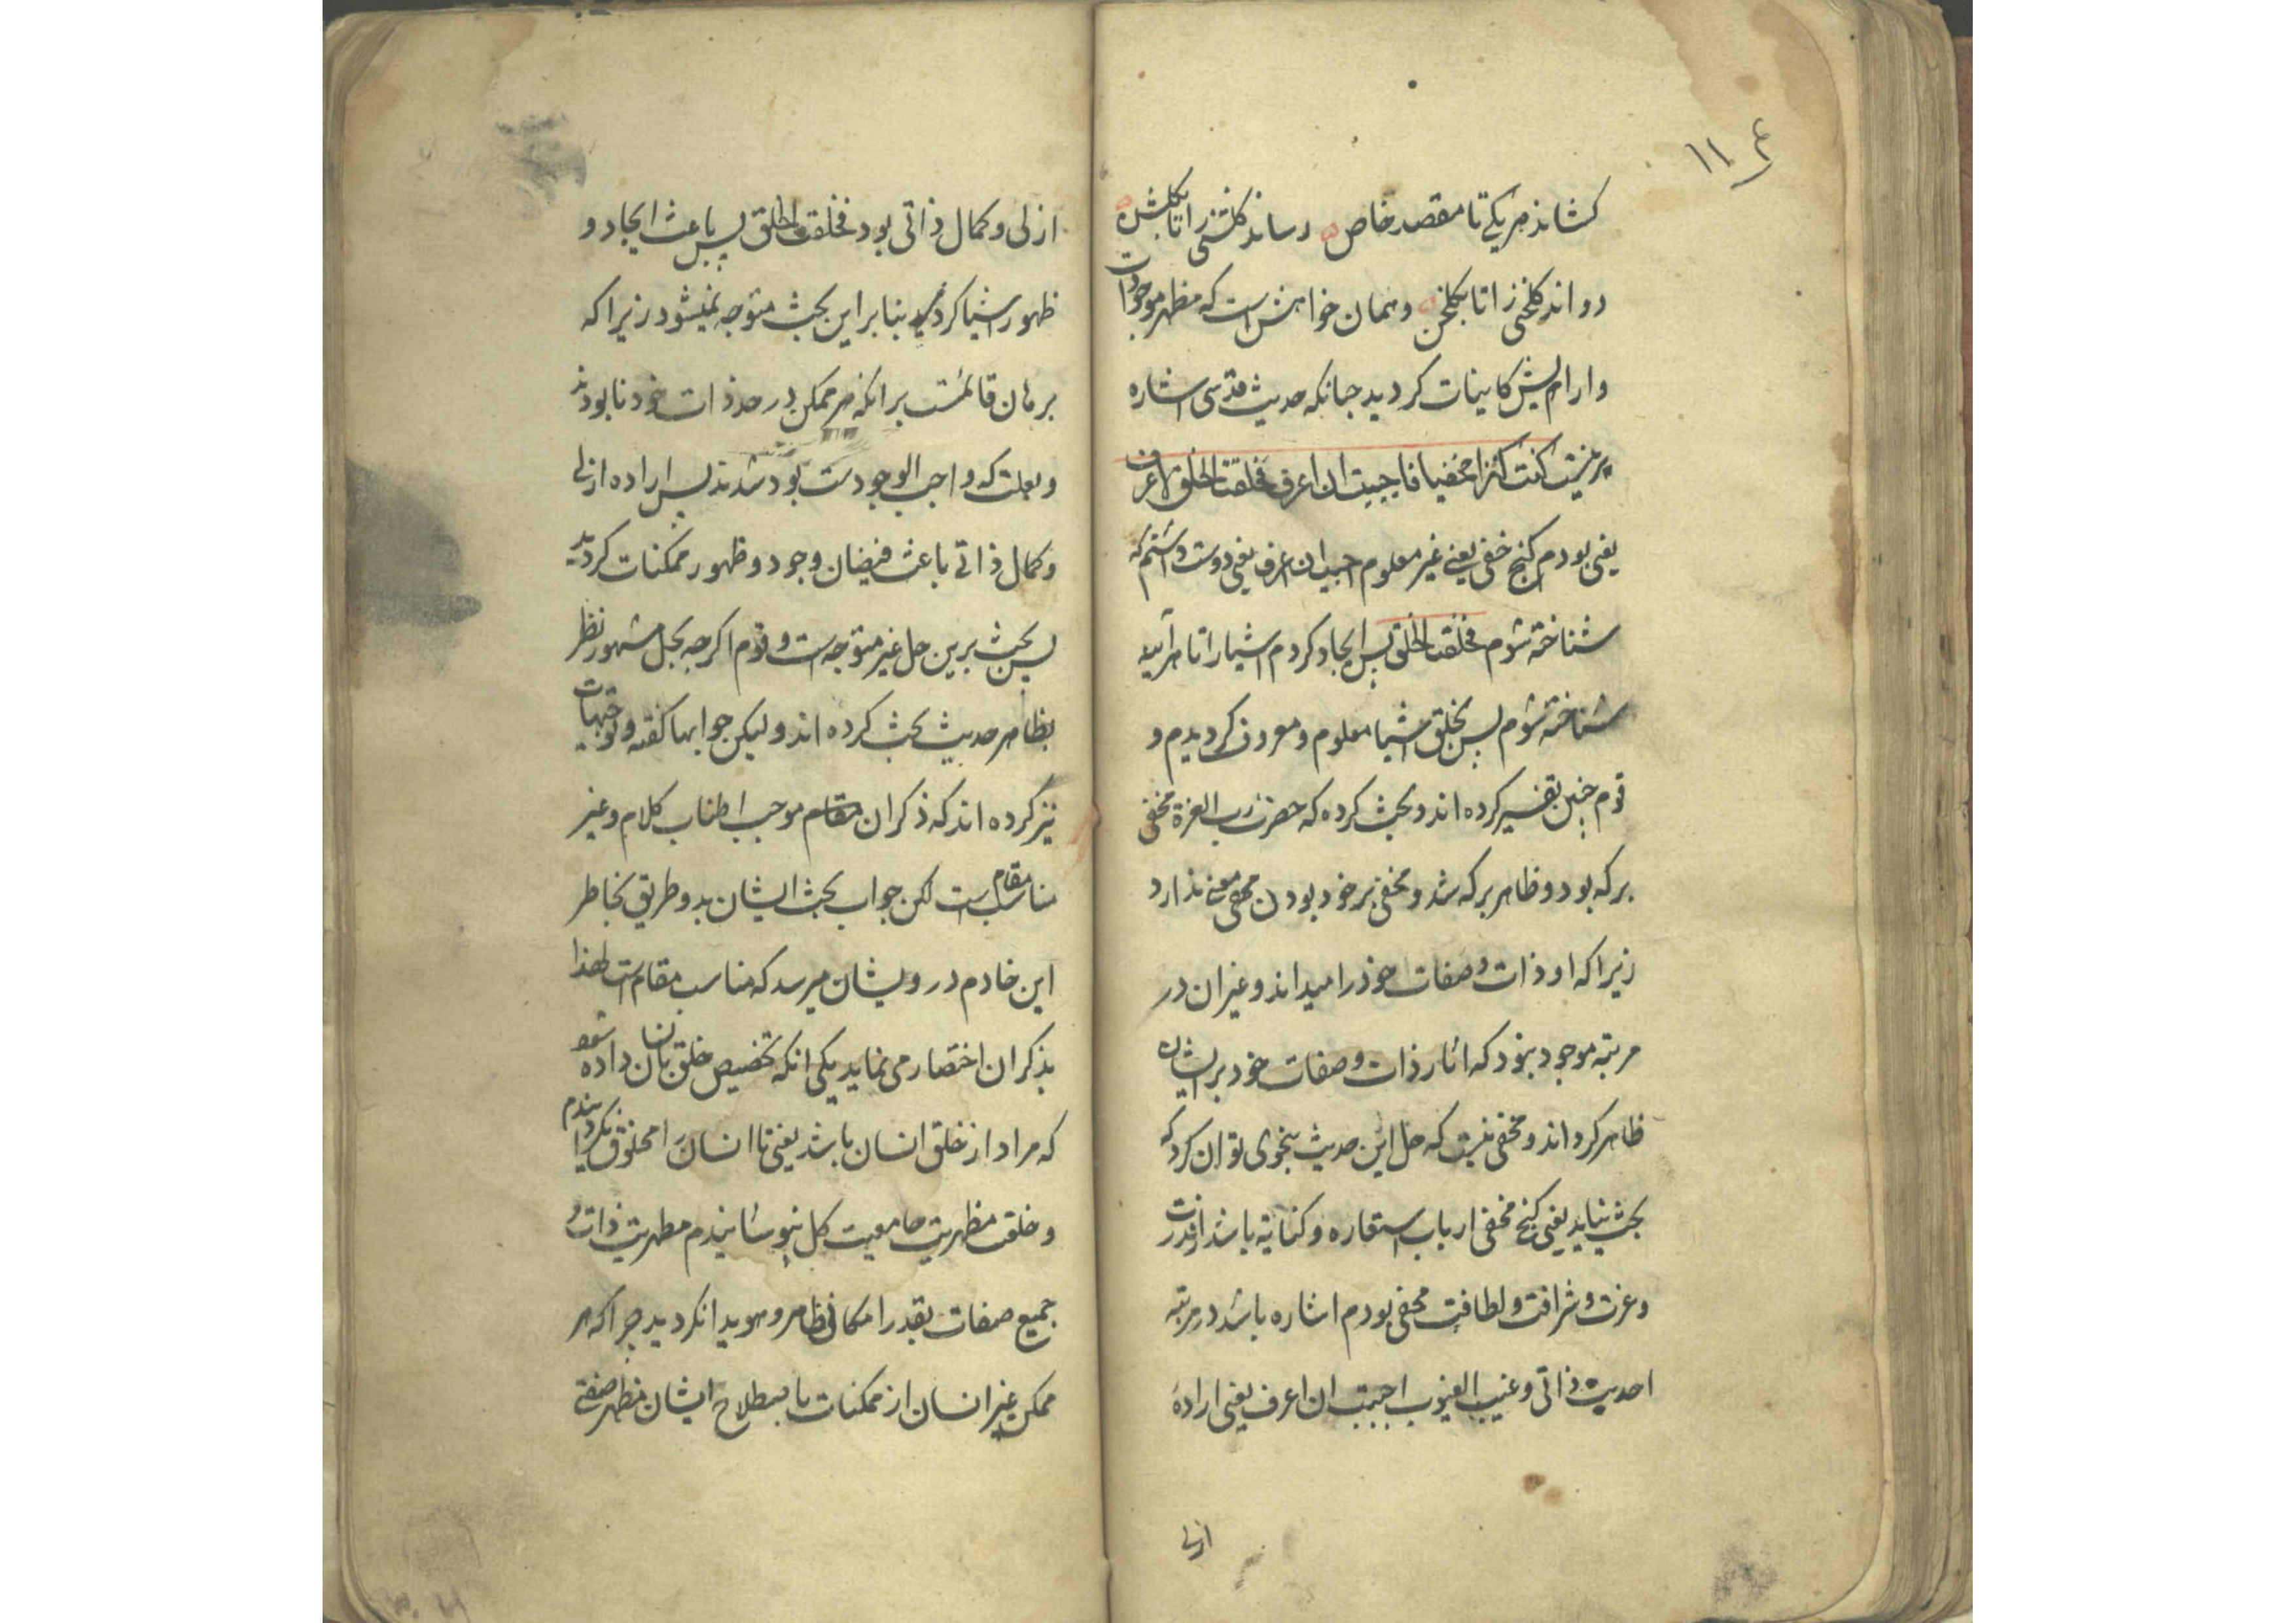 ۱۱۴
کشاند هر یکی تا مقصد خاص رساند کلشنی را تا بکلشن
دواند کلخنی را تا بکلخن و همان خواهش است که مظهر موجودات
و ارامش کاینات کردید جنانکه حدیث قدسی اشاره
برینست کنت کنزا مخفیا فاحببت ان اعرف فخلقت الخلق لاعرف
یعنی بودم کنج خفی یعنی غیر معلوم احببت ان اعرف یعنی دوست داشتم که
شناخته شوم فخلقت الخلق بس ایجاد کردم اشیا را تا هر آینه
شناخته شوم بس بخلق اشیا معلوم و معروف کردیدم و
قوم جنین تفسیر کرده اند و بحث کرده که حضرت رب العزة مخفی
بر که بود و ظاهر بر که شد و مخفی بر خود بودن معنی ندارد
زیرا که او ذات و صفات خود را میداند و غیر ان در
مرتبه موجود نبود که اثار ذات و صفات خود بر ایشان
ظاهر کرداند و مخفی نیست که حل این حدیث بنحوی توان کرد که
بحث نیاید یعنی کنج مخفی از باب استعاره و کنایة باشد از قدرت
و عزت و شرافت و لطافت مخفی بودم اشاره باشد در مرتبه
احدیت ذاتی و غیب الغیوب احببت ان اعرف یعنی ارادهٔ
ازلی
ازلی و کمال ذاتی بود فخلقت الخلق بس باعث ایجاد و
ظهور اشیا کردید بنابر این بحث متوجه نمیشود زیرا که
برهان قائمست بر انکه هر ممکن در حد ذات خود نابودند
و بعلت که واجب الوجودست بود شدند بس اراده ازلی
و کمال ذاتی باعث فیضان وجود و ظهور ممکنات کردید
بس بحث برین حل غیر متوجه است و قوم اکرجه بحل مشهور نظر
بظاهر حدیث بحث کرده اند و لیکن جوابها کفته و توجیهات
نیز کرده اند که ذکر ان موجب اطناب کلام و غیر
مناسب مقام است لکن جواب بحث ایشان بدو طریق بخاطر
این خادم درویشان میرسد که مناسب مقام است لهذا
بذکر ان اختصار می نماید یکی انکه تخصیص خلق بانسان داده شود
که مراد از خلق انسان باشد یعنی تا انسان را مخلوق نکردانیدم
و خلعت مظهریت جامعیت کل نپوشانیدم مظهریت ذات و
جمیع صفات بقدر امکانی ظاهر و هویدا نکردید جرا که هر
ممکن غیر انسان از ممکنات باصطلاح ایشان مظهر صفتی